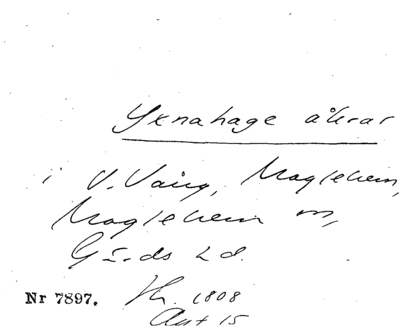 Yxnahage åkrar
i V. Vång, Maglehem,
Maglehem sn,
Gärds hd.
Nr 7897. Sk. 1808
Akt 15